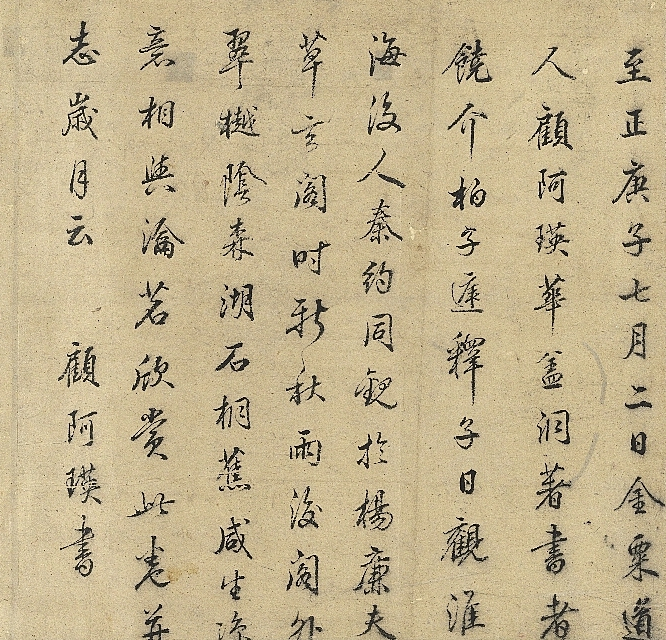 至正庚子七月二日金粟道
人顧阿瑛華蓋洞著書者
饒介柏子遲釋子日觀淮
海後人秦約同觀於楊廉夫
草玄閣時新秋雨後閣外
翠樾陰森湖石桐蕉咸生涼
意相與瀹茗欣賞此卷并
志歲月云 顧阿瑛書